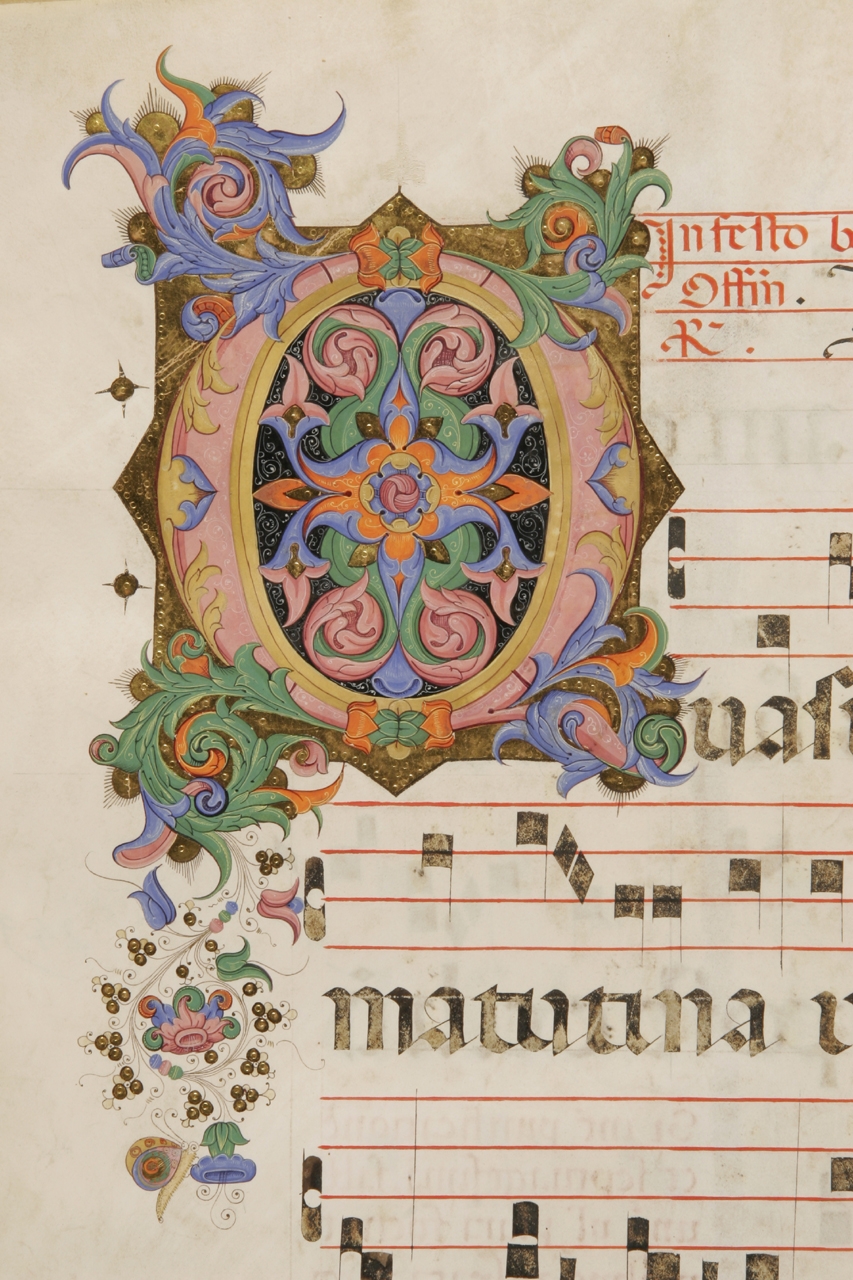 In festo b
Offin.
R.
Quasi
matutina